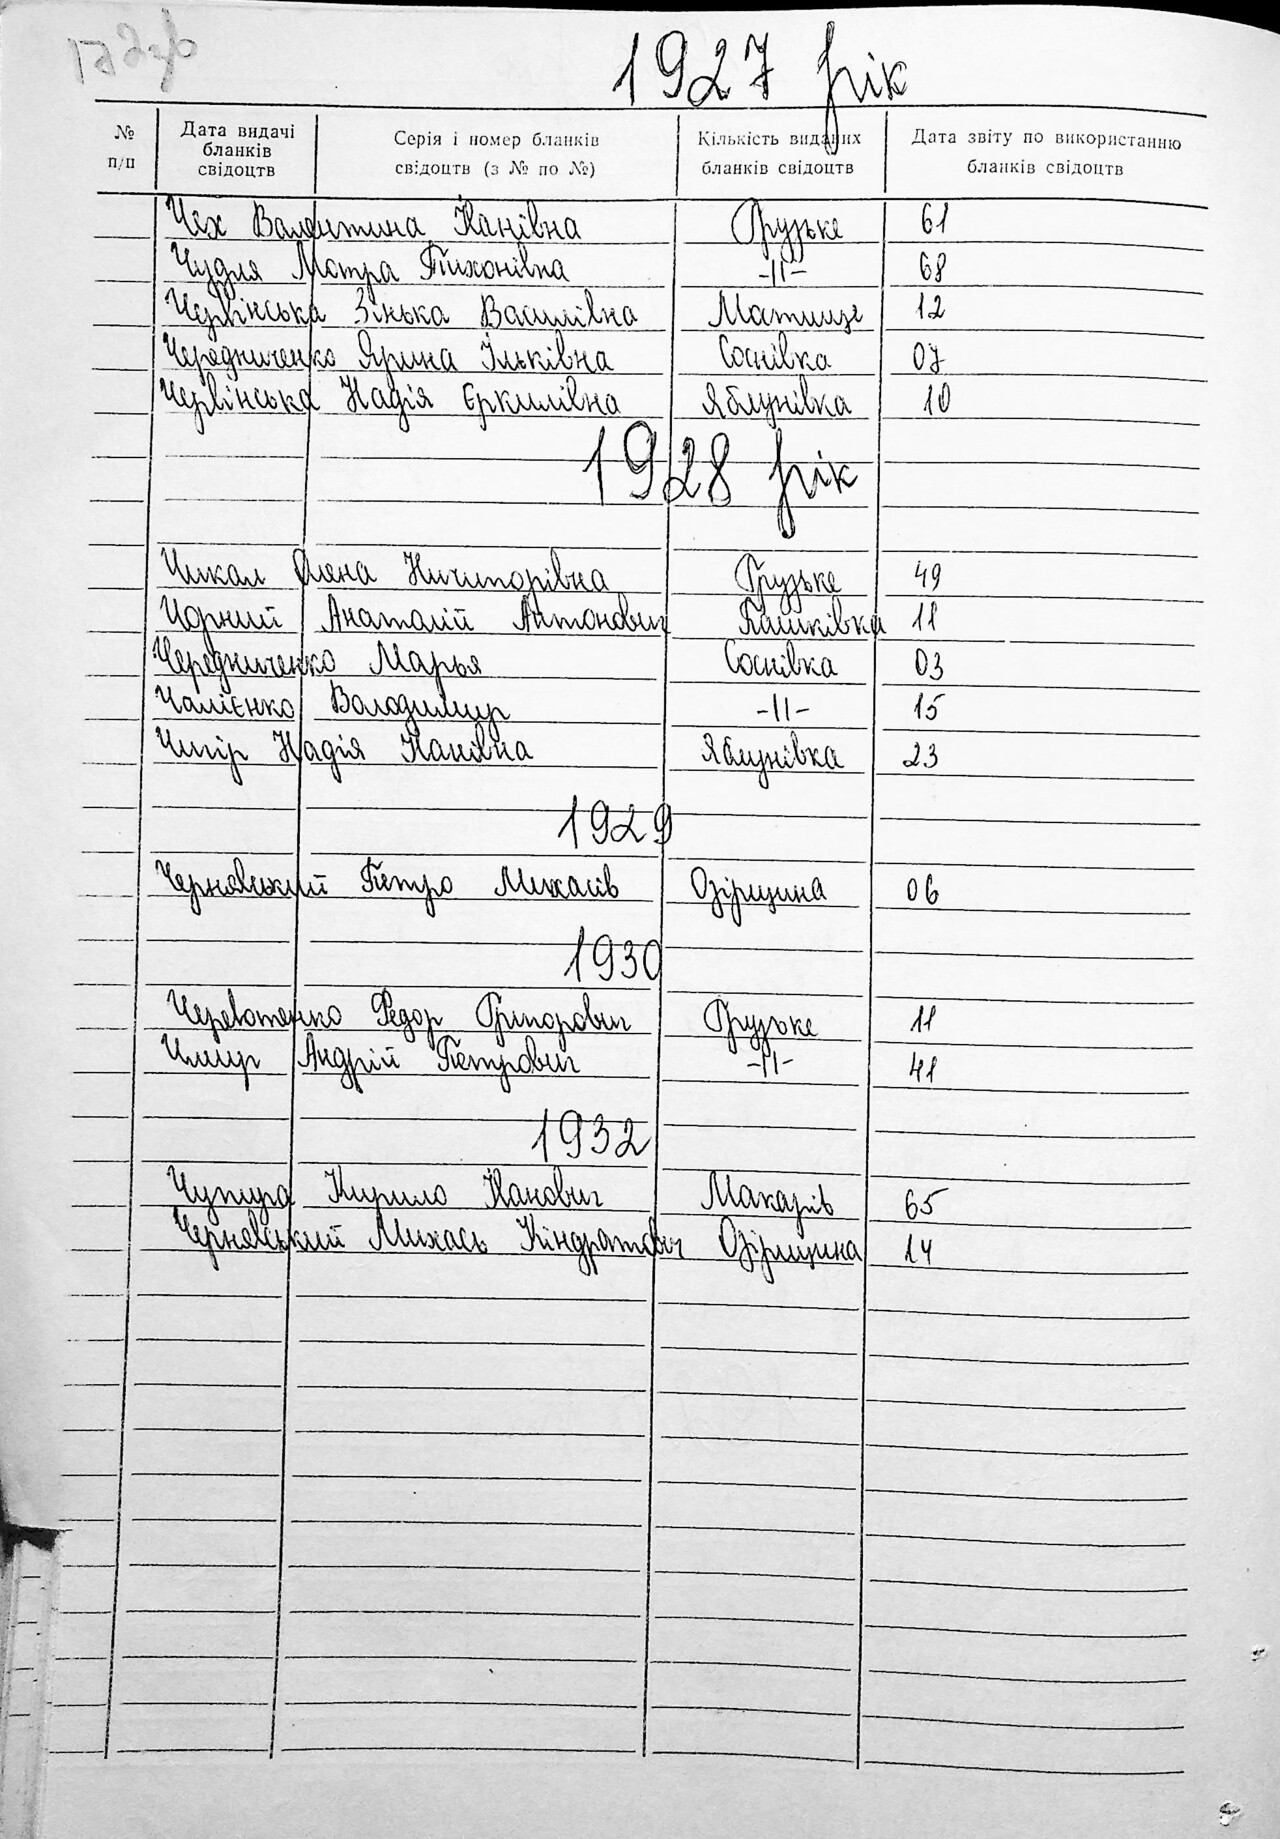 1927 рік
№ п/п
Дата видачі бланків свідоцтв
Серія і номер бланків свідоцтв (з № по №)
Кількість виданих бланків свідоцтв
Дата звіту по використанню бланків свідоцтв
Чех Валентина Іванівна Грузьке 61
Чудля Мотра Тихонівна -||- 68
Червінська Зінька Василівна 12
Чередниченко Ярина Ільківна Соснівка 07
Червінська Надія Єркилівна Яблунівка 10
1928 рік
Чикал Олена Ничипорівна Грузьке 49
Чорний Анаталій Антонович Пашківка 11
Чередниченко Марья Соснівка 03
Чалієнко Володимир -||- 15
Чигір Надія Іванівна Яблунівка 23
1929
Чернявський Петро Михасів Озірщина 06
1930
Черевотенко Федор Григорович Грузьке 11
Андрій Петрович -||- 41
1932
Кирило Іванович Макарів 65
Чернявський Михась Кіндратович Озірщина 14